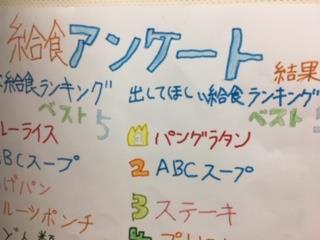 給食アンケート
結果
給食ランキング
ベスト5
ーライス
BCスープ
げパン
ルーツポンチ
出してほしい給食ランキング
ベスト
1 パングラタン
2 ABCスープ
3 ステーキ